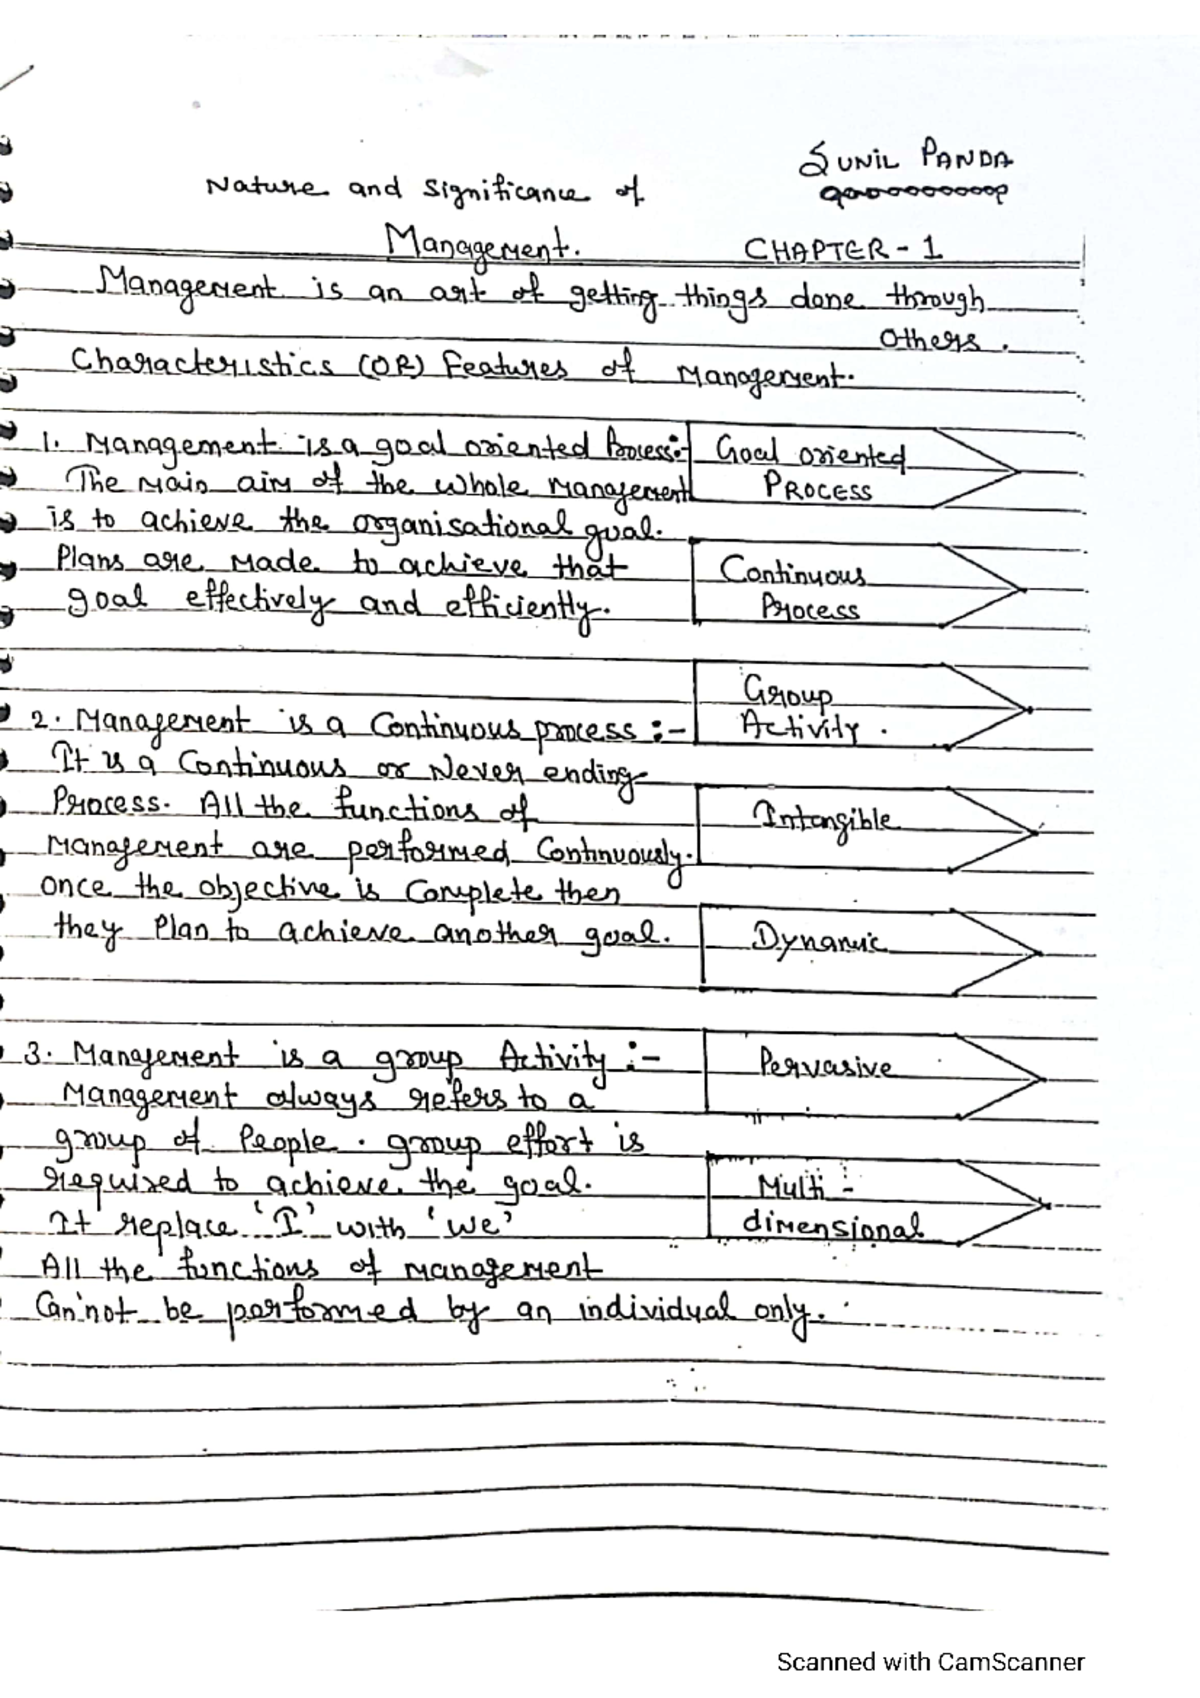 SUNIL PANDA
Nature and Significance of
Management. CHAPTER - 1
Management is an art of getting things done through
others.
Characteristics (OR) Features of Management.
1. Management is a goal oriented Process:-
The main aim of the whole management
is to achieve the organisational goal.
Plans are made to achieve that
goal effectively and efficiently.
2. Management is a Continuous process :-
It is a Continuous or Never ending
Process. All the functions of
Management are performed Continuously.
once the objective is Complete then
they Plan to achieve another goal.
3. Management is a group Activity :-
Management always refers to a
group of People. group effort is
required to achieve the goal.
It replace 'I' with 'we'
All the functions of management
Can'not be performed by an individual only.
Goal oriented
PROCESS
Continuous
Process
Group
Activity.
Intangible
Dynamic
Pervasive
Multi -
dimensional
Scanned with CamScanner